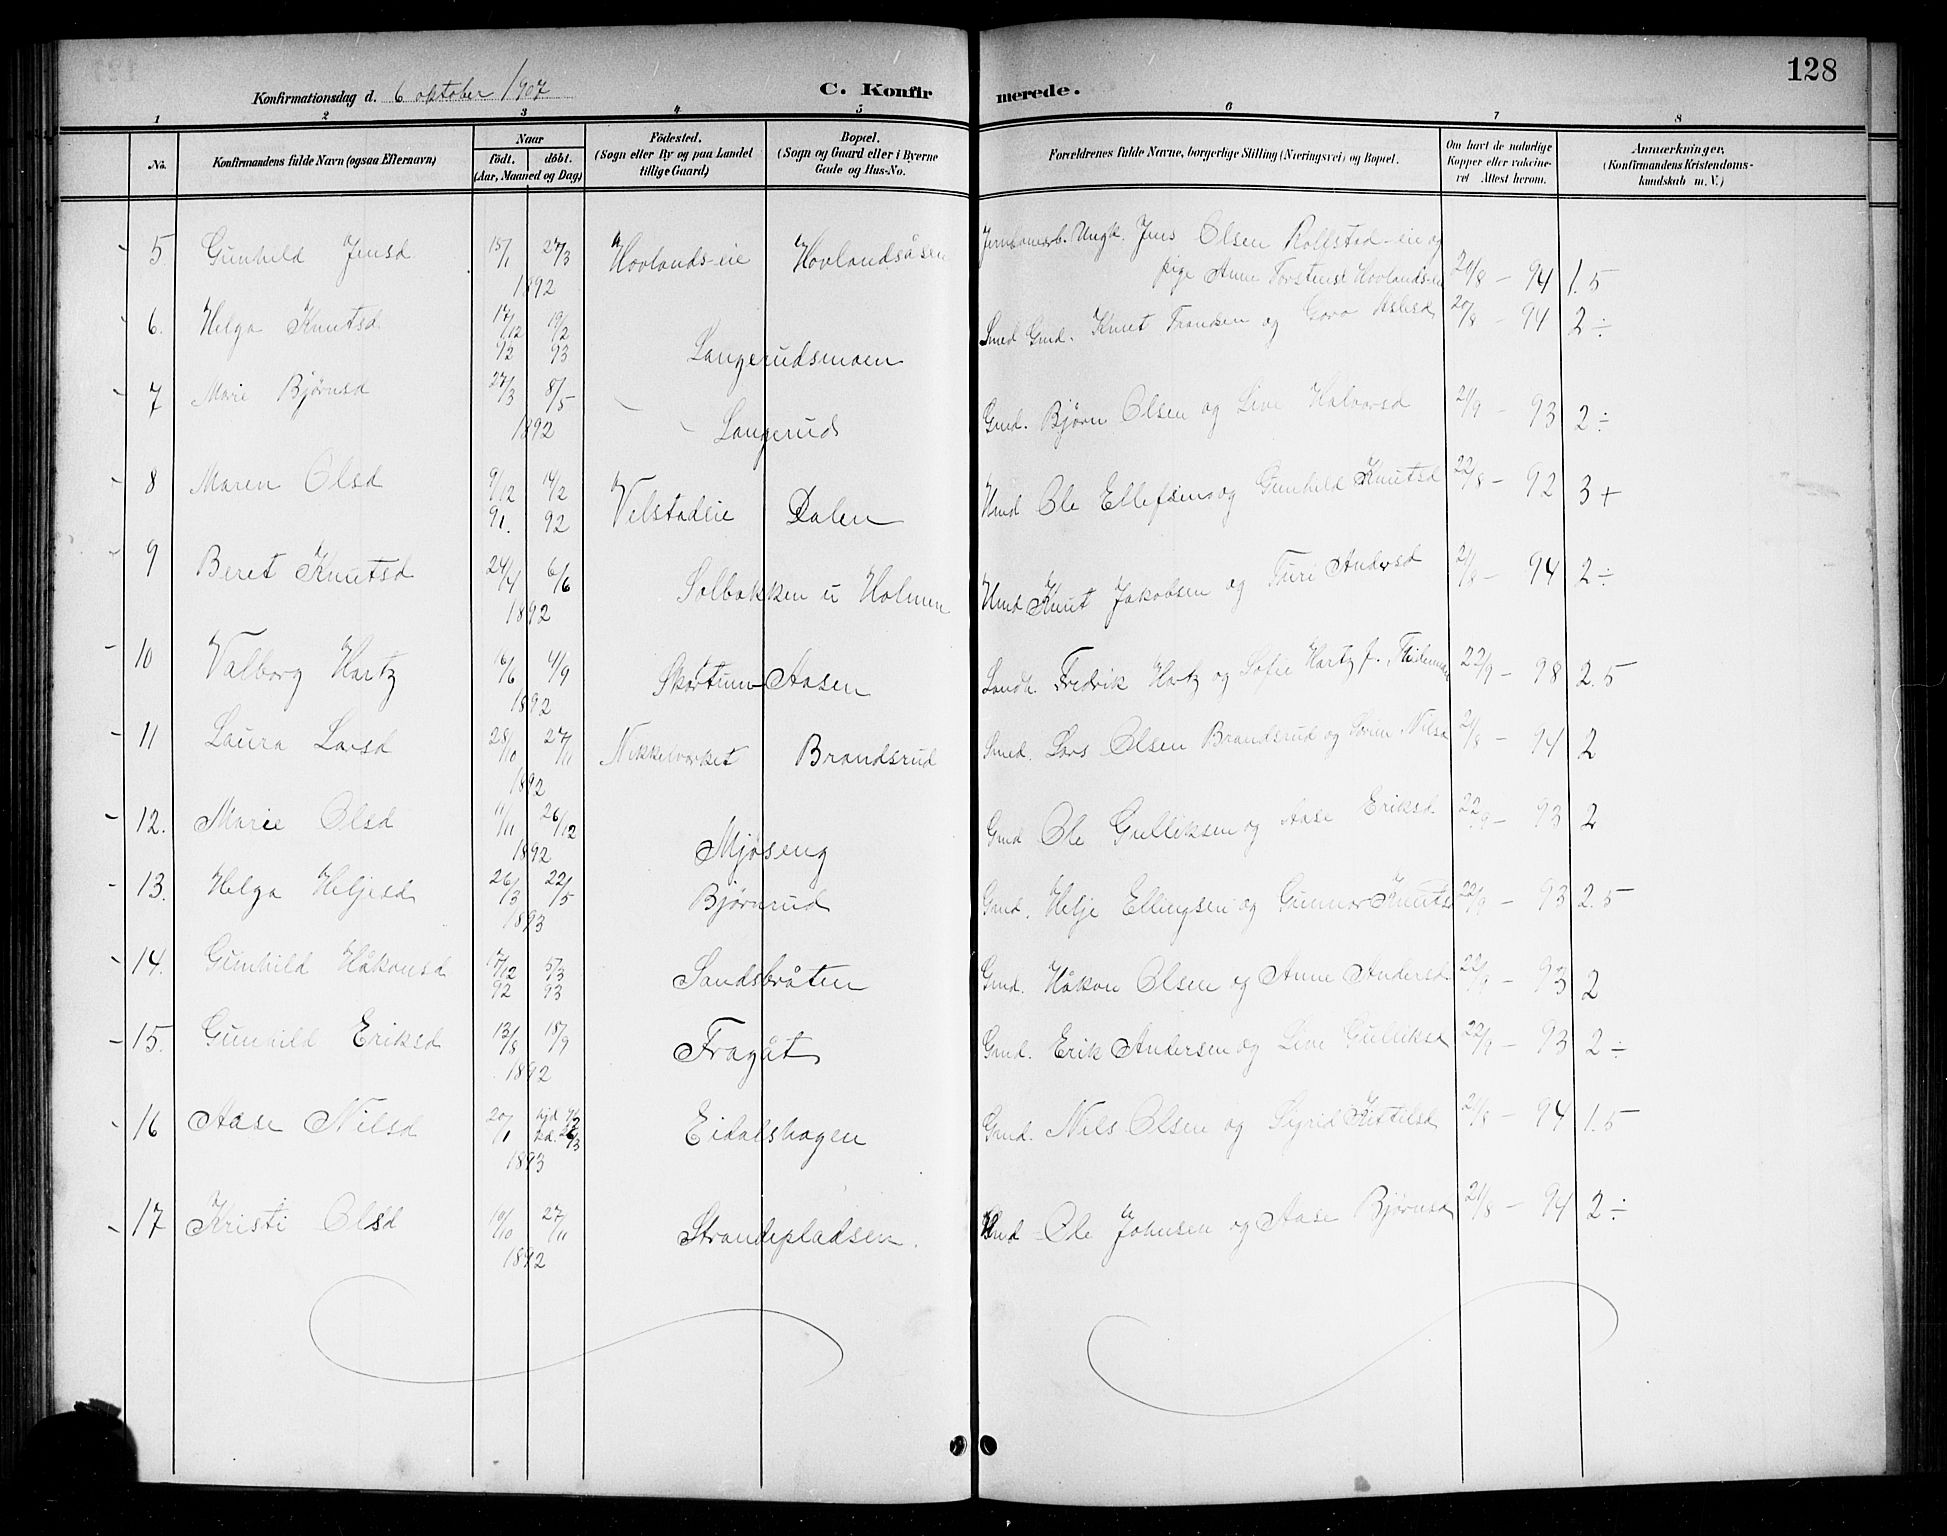 128
Konfirmationsdag d. 6 oktober 1907 C. Konfirmerede.
1 2 3 4 5 6 7 8
No. Konfirmandens fulde Navn (ogsaa Efternavn) Naar födt. döbt. (Aar, Maaned og Dag) Födested. (Sogn eller By og paa Landet tillige Gaard) Bopæl. (Sogn og Gaard eller i Byerne Gade og Hus-No. Forældrenes fulde Navne, borgerlige Stilling (Næringsvei) og Bopæl. Om havt de naturlige Kopper eller vakcineret. Attest herom. Anmærkninger, (Konfirmandens Kristendomskundskab m. V.)
5. Gunhild Jensd 15/1 27/3 1892 Hovlands-eie Hovlandsåsen Jernbanearb. Ungk. Jens Olsen Rollstad-eie og
pige Anne Torstensd Hovlands-eie 94 1.5
6. Helga Knutsd 17/12 92 19/2 93 Langerudsmoen Smed Gmd. Knut Fransen og Goro 20/8 - 94 2÷
7 Marie Bjørnsd 27/3 8/5 1892 Langerud Gmd. Bjørn Olsen og Live Halvorsd 21/9 - 93 2÷
8 Maren Olsd 9/12 91. 14/2 92 Velstadeie Dalen Hmd Ole Ellefsen og Gunhild Knutsd 22/8 - 92 3+
9 Beret Knutsd 24/4 6/6 1892 Solbakken u Holmen Hmd Knut Jakobsen og Turi Andersd 21/8 - 94 2÷
10 Valborg Hartz 16/6 4/9 1892 Skartum-Aasen Landh. Fredrik Hartz og Sofie Hartz f. 22/9 - 98 2.5
11 Laura Larsd 28/10 27/11 1892 Nikkelværket Brandsrud Smed. Lars Olsen Brandsrud og Nilsd 21/8 - 94 2
12. Marie Olsd 11/11 26/12 1892 Mjøseng Gmd Ole Gulliksen og Aase Eriksd 22/9 - 93 2
13. Helga Heljesd 26/3 22/5 1893 Bjørnrud Gmd. Helje Ellingsen og Gunnor Knutsd 22/9 - 93 2.5
14. Gunhild Håkonsd 17/12 92 5/3 93 Sandsbråten Gmd. Håkon Olsen og Anne Andersd 22/9 - 93 2
15. Gunhild Eriksd 13/8 18/9 1892 Fragåt Gmd. Erik Andersen og Live Gulliksd 22/9 - 93 2÷
16 Aase Nilsd 20/1 1893 Eidalshagen Gmd. Nils Olsen og Sigrid Kittilsd 21/8 - 94 1.5
17 Kristi Olsd 10/10 27/11 1892 Strandepladsen. Hmd Ole Johnsen og Aase Bjørnsd 21/8 - 94 2÷